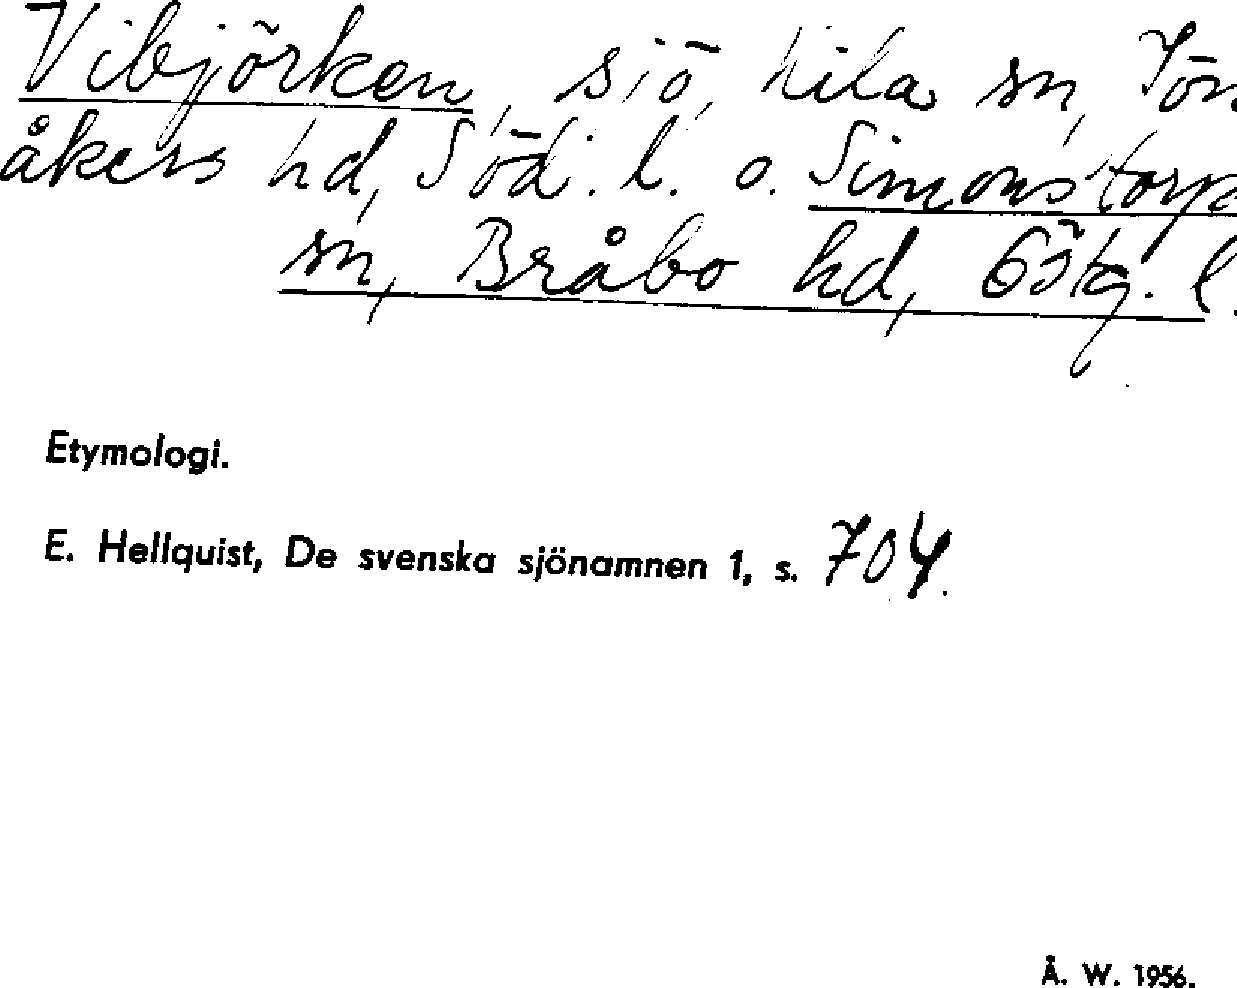 Vibjörken, sjö, Kila sn, Jön-
åkers hd, Söd. l. o. Simonstorps
sn, Bråbo hd, Östg. l.
Etymologi.
E. Hellquist, De svenska sjönamnen 1, s. 704.
Å. W. 1956.